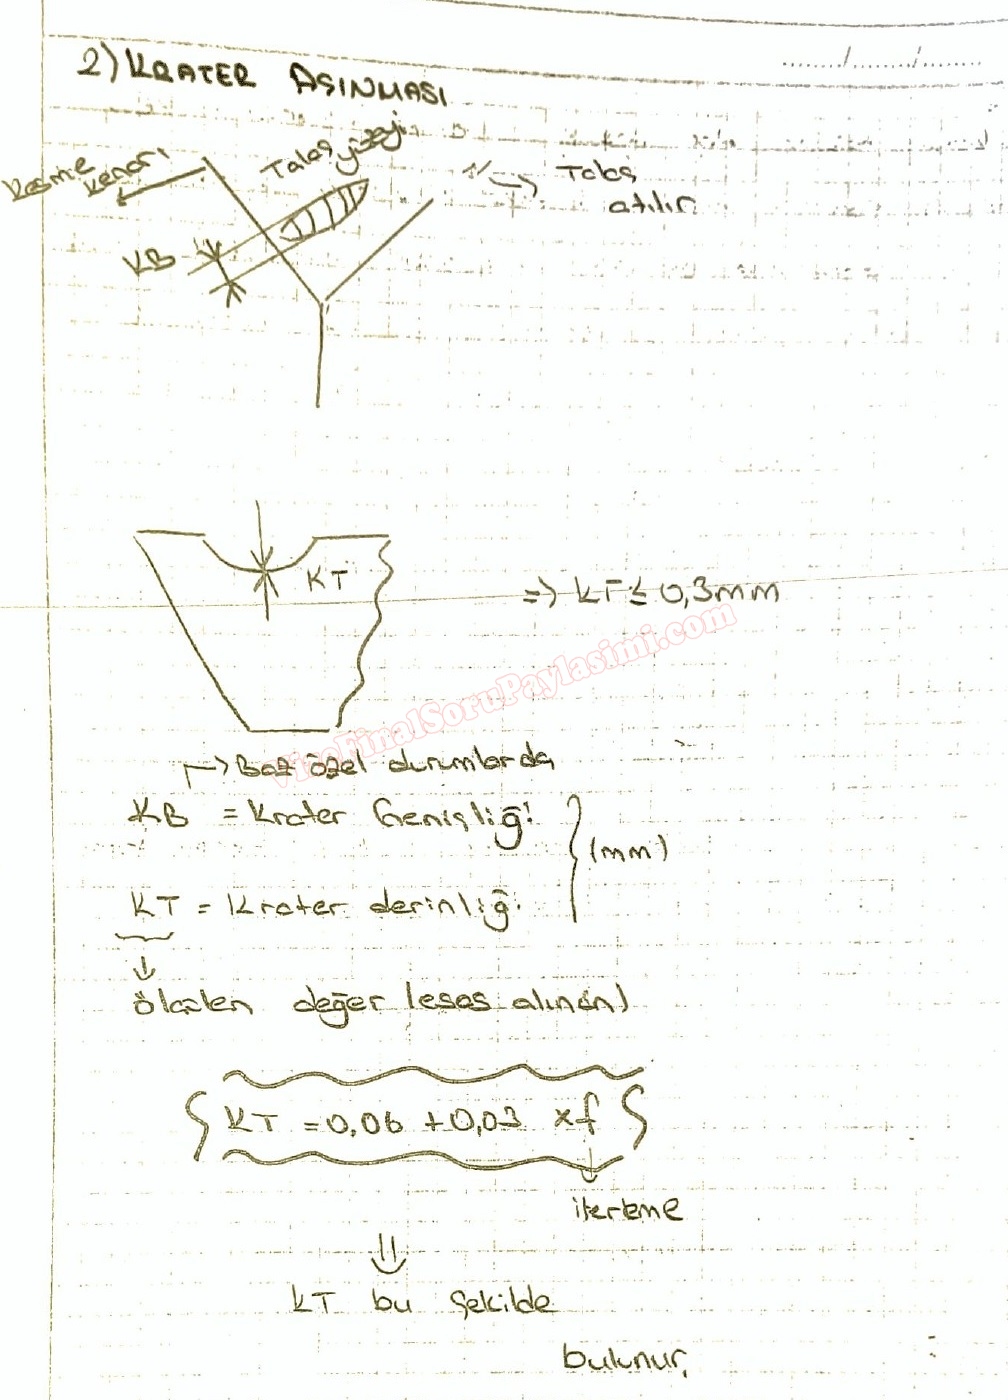 2) KRATER AŞINMASI
Kesme kenarı
Talaş yüzeyi
Talaş
atılır
KB
KT
=> KT ≤ 0,3mm
VizeFinalSoruPaylasimi.com
Bazı özel durumlarda
KB = Krater Genişliği
(mm)
KT = Krater derinliği
ölçülen değer (esas alınan)
KT = 0,06 + 0,03 x f
ilerleme
KT bu şekilde
bulunur,